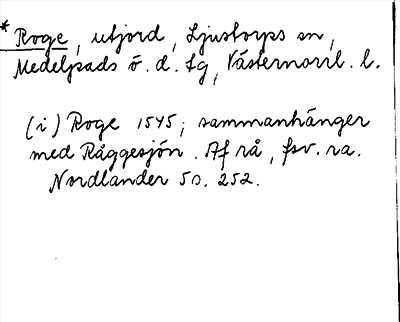 * Roge, utjord, Ljustorps sn,
Medelpads ö. d. tg, Västernorrl. l.
(i) Roge 1545; sammanhänger
med Råggesjön. Af rå, fsv. ra.
Nordlander So. 252.